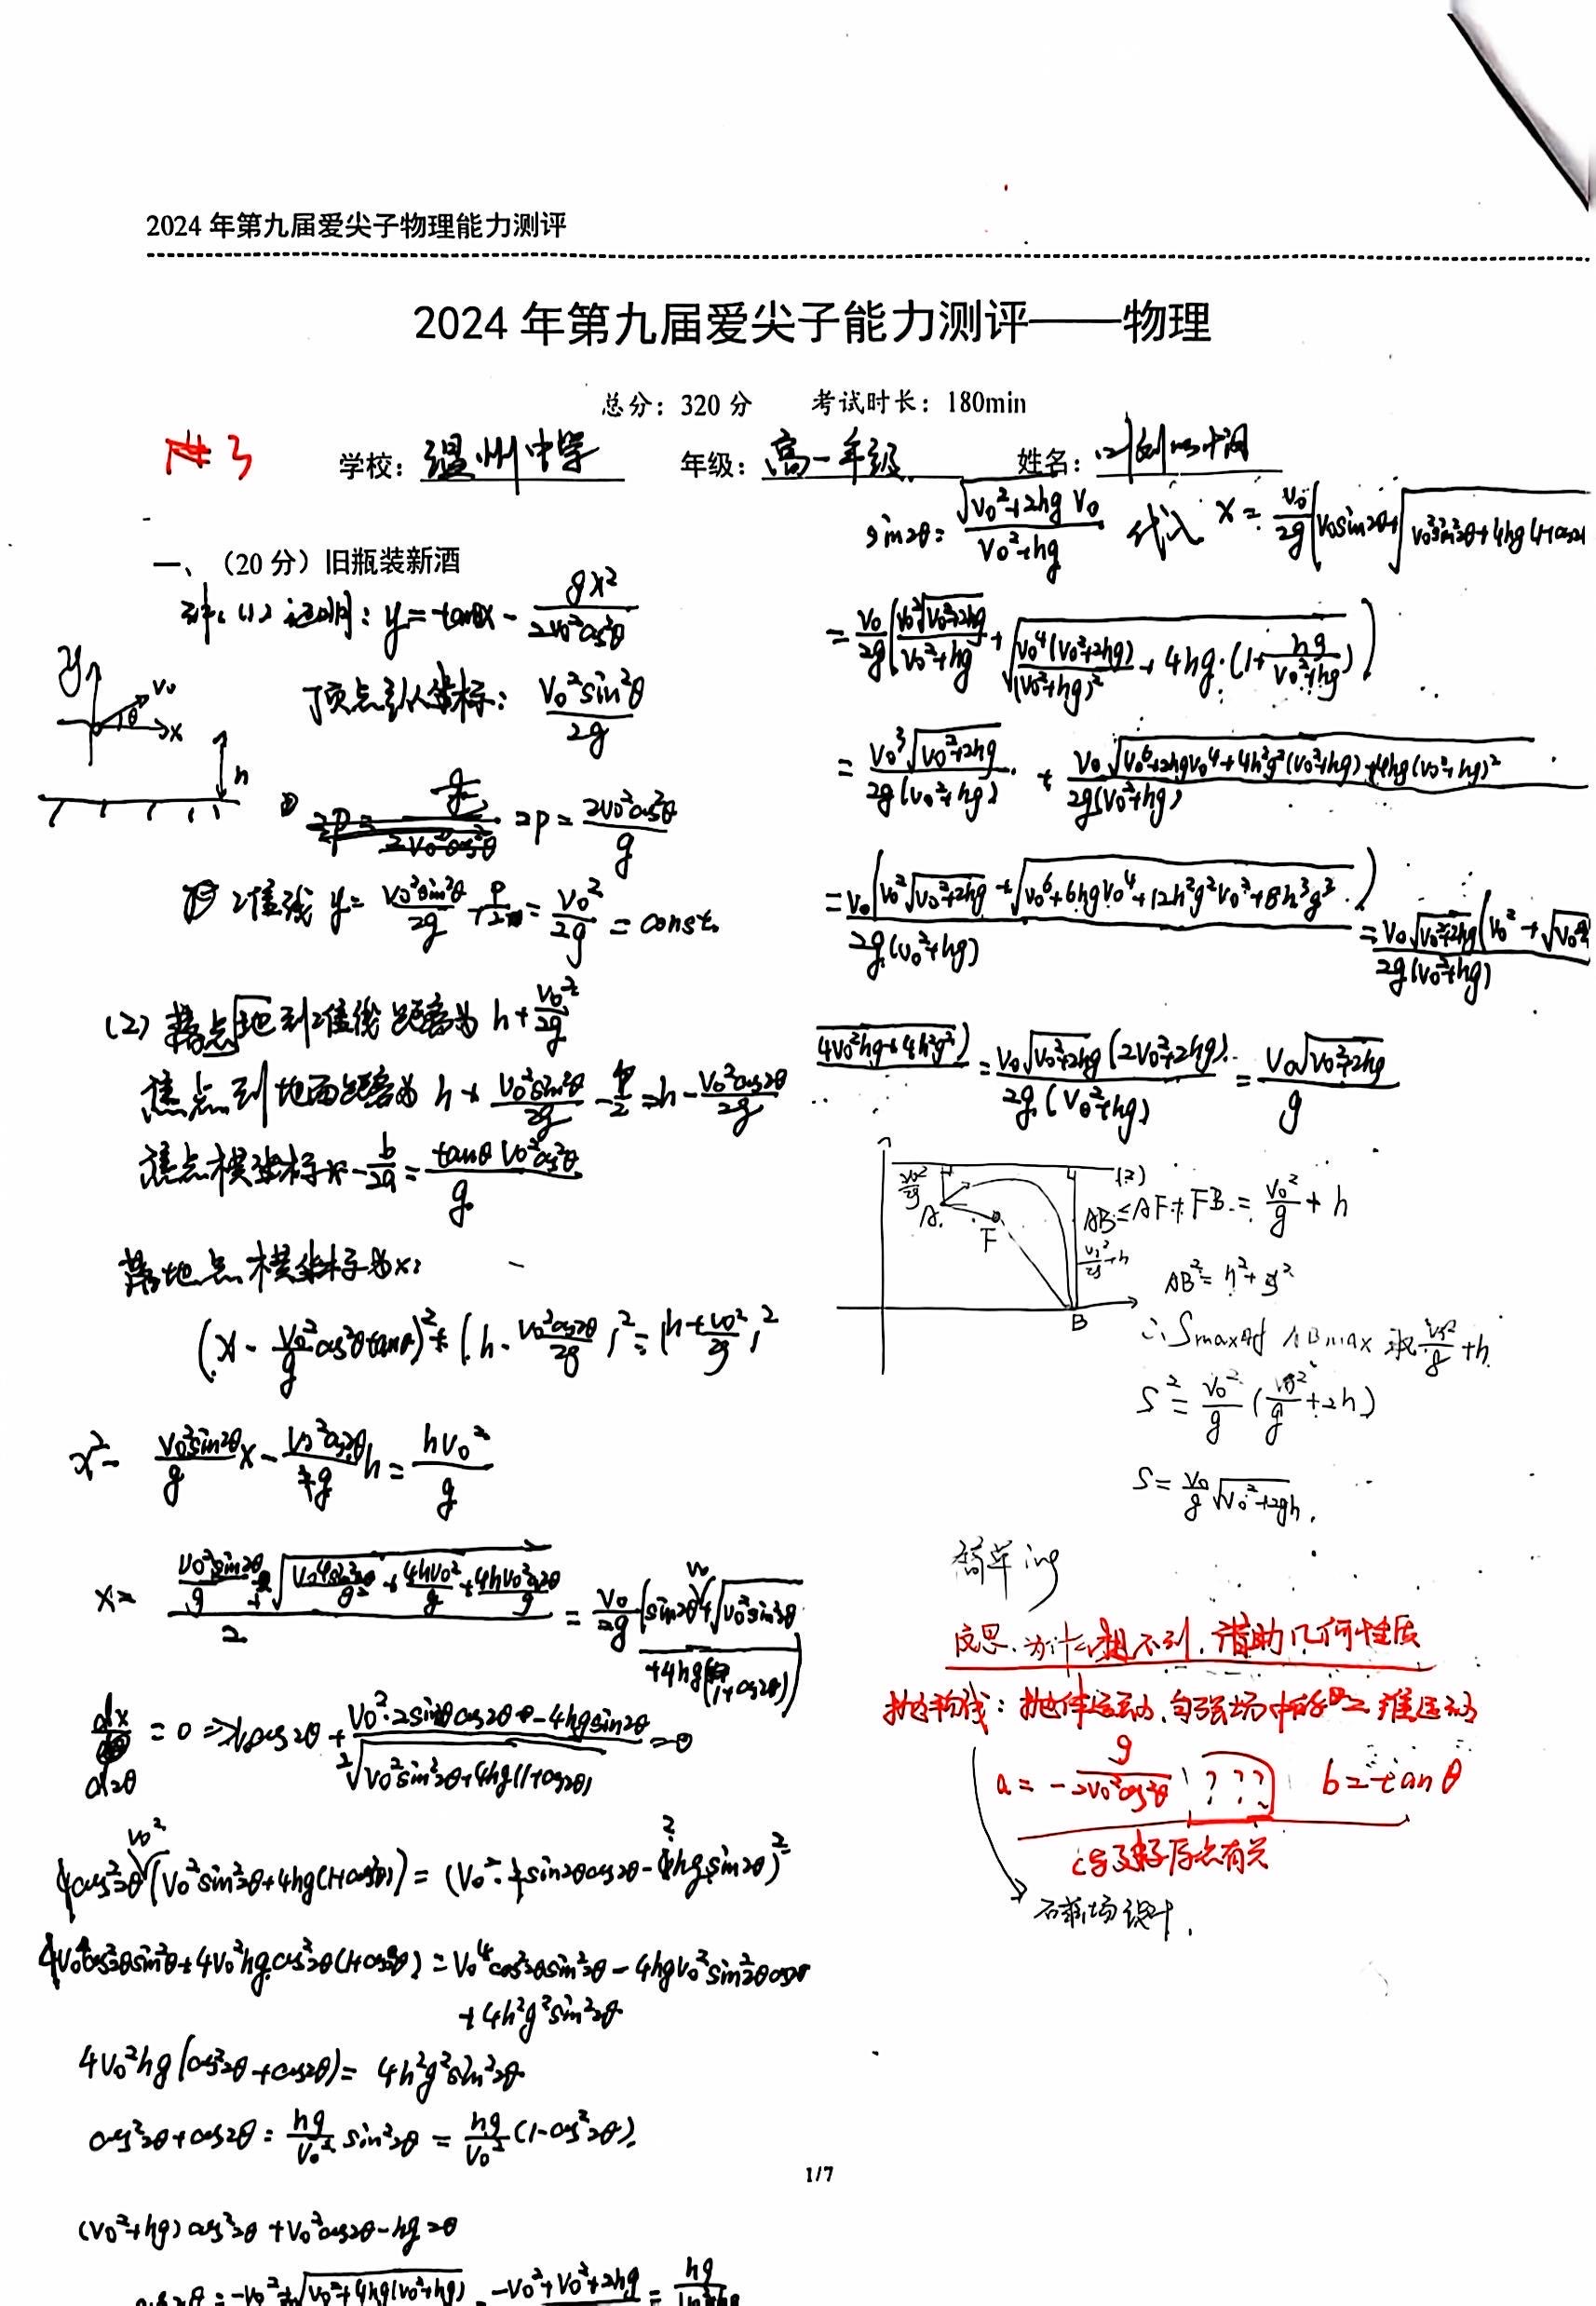 2024 年第九届爱尖子物理能力测评
2024 年第九届爱尖子能力测评——物理
总分：320 分 考试时长：180min
3
学校：温州中学 年级：高一年级 姓名：
一、（20 分）旧瓶装新酒
(1) 证明：y=tanθx - gx²/(2v₀²cos²θ)
顶点纵坐标：v₀²sin²θ/(2g)
y
v₀
θ
x
h
2P = 2v₀²cos²θ/g
准线 y = v₀²sin²θ/(2g) + P/2 = v₀²/(2g) = const.
(2) 落地到准线距离为 h + v₀²/(2g)
焦点到地面距离为 h + v₀²sin²θ/(2g) - P/2 = h - v₀²cos2θ/(2g)
焦点横坐标 -b/(2a) = tanθ v₀²cos²θ/g
落地点横坐标为x：
(x - v₀²/g cos²θtanθ)² + (h - v₀²cos2θ/(2g))² = (h + v₀²/(2g))²
x² - v₀²sin2θ/g x - v₀²cos2θ/g h = hv₀²/g
x = (v₀²sin2θ/g + √(v₀⁴sin²2θ/g² + 4hv₀²/g + 4hv₀²cos2θ/g))/2 = v₀/(2g) (v₀sin2θ + √(v₀²sin²2θ + 4hg(1+cos2θ)))
dx/d2θ = 0 ⇒ v₀cos2θ + (v₀²·2sin2θcos2θ - 4hgsin2θ)/(2√(v₀²sin²2θ+4hg(1+cos2θ))) = 0
v₀²cos²2θ(v₀²sin²2θ+4hg(1+cos2θ)) = (v₀²·sin2θcos2θ - 2hgsin2θ)²
v₀⁴cos²2θsin²2θ + 4v₀²hgcos²2θ(1+cos2θ) = v₀⁴cos²2θsin²2θ - 4hgv₀²sin²2θcos2θ
+ 4h²g²sin²2θ
4v₀²hg(cos²2θ+cos2θ) = 4h²g²sin²2θ
cos²2θ+cos2θ = hg/v₀² sin²2θ = hg/v₀² (1-cos²2θ)
(v₀²+hg)cos²2θ + v₀²cos2θ - hg = 0
sin2θ = √(v₀²+2hg) v₀/(v₀²+hg) 代入 x = v₀/(2g) (v₀sin2θ+√(v₀²sin²2θ+4hg(1+cos2θ
= v₀/(2g) (v₀²√(v₀²+2hg)/(v₀²+hg) + √(v₀⁴(v₀²+2hg)/(v₀²+hg)² + 4hg·(1+hg/(v₀²+hg))))
= v₀³√(v₀²+2hg)/(2g(v₀²+hg)) + v₀√(v₀⁶+2hgv₀⁴+4h²g²(v₀²+hg)+4hg(v₀²+hg)²)/(2g(v₀²+hg))
= v₀(v₀²√(v₀²+2hg) + √(v₀⁶+6hgv₀⁴+12h²g²v₀²+8h³g³))/(2g(v₀²+hg)) = v₀√(v₀²+2hg)(v₀²+√(v₀⁴
4v₀²hg+4h²g²) = v₀√(v₀²+2hg)(2v₀²+2hg)/(2g(v₀²+hg)) = v₀√(v₀²+2hg)/g
v₀²/2g
A
F
v₀²/2g+h
B
(2)
AB ≤ AF + FB = v₀²/g + h
AB² = h² + s²
∴ Smax时 ABmax 取 v₀²/g + h
S² = v₀²/g (v₀²/g + 2h)
S = v₀/g √(v₀²+2gh).
简单ing
反思. 为什么想不到. 借助几何性质
抛物线：抛体运动. 匀强场中的二维运动
a = - g/(2v₀²cos²θ) ??? b = tanθ
c与坐标原点有关
磁场设计.
1/7